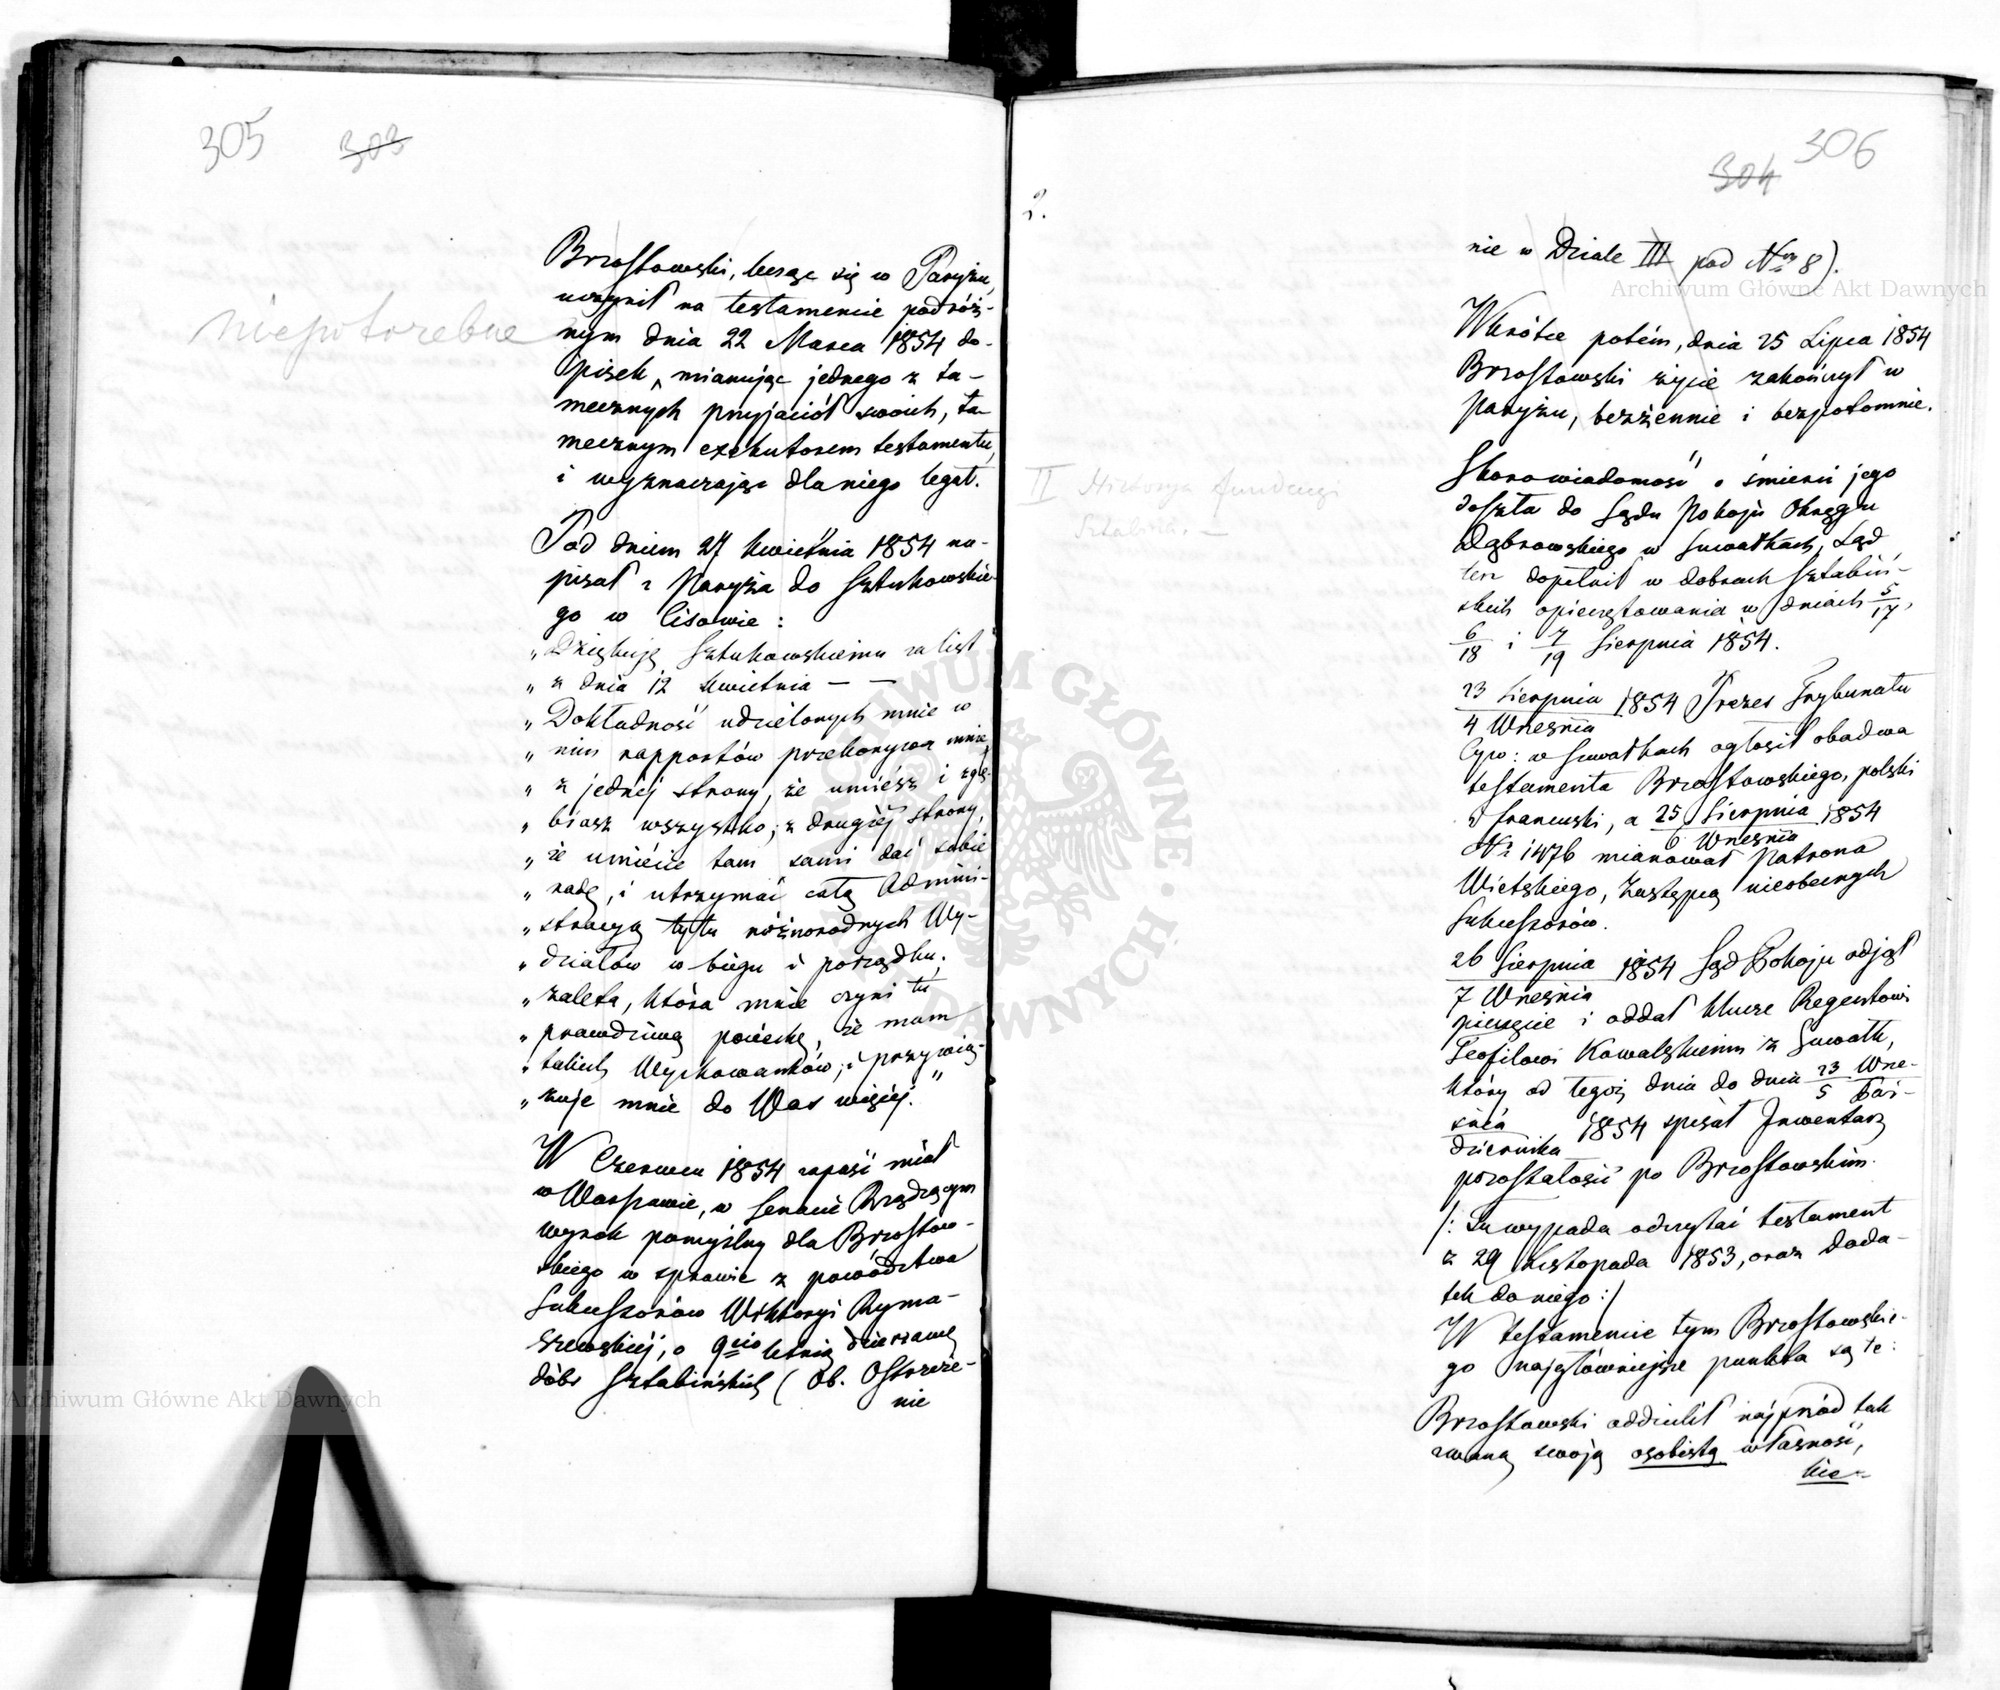 305 303
niepotrzebne
Brzostowski, lecząc się w Paryżu,
uczynił na testamencie podróż-
nym dnia 22 Marca 1854 do-
pisek, mianując jednego z ta-
mecznych przyjaciół swoich, ta-
mecznym exekutorem testamentu,
i wyznaczając dla niego legat.
Pod dniem 27 kwietnia 1854 na-
pisał z Paryża do Sztukowskie-
go w Cisowie:
„Dziękuję Sztukowskiemu za list
„z dnia 12 kwietnia — —
„Dokładność udzielonych mnie w
„nim rapportów przekonywa mnie,
„z jednéj strony, że umiész i zgłę-
„biasz wszystko; z drugiéj strony,
„że umiécie tam sami dać sobie
„radę, i utrzymać całą Admini-
„stracyą tylu różnorodnych Wy-
„działów w biegu i porządku;
„zaleta, która mnie czyni tu
„prawdziwą pociechę, że mam
„takich Wychowanków, i przywią-
„zuje mnie do Was więcéj."
W Czerwcu 1854 zapaść miał
w Warszawie, w Senacie Rządzącym
wyrok pomyślny dla Brzostow-
skiego w sprawie z powództwa
Sukcessorów Wiktoryi Ryma-
szewskiéj, o 9cio letnią dzierzawę
dóbr Sztabińskich (Ob. Ostrzeże-
nie
306
304
2.
nie w Dziale III pod Nrm 8).
Wkrótce potém, dnia 25 Lipca 1854
Brzostowski życie zakończył w
Paryżu, bezżennie i bezpotomnie.
II Historya fundacyi
Sztabin. —
Skoro wiadomość o śmierci jego
doszła do Sądu Pokoju Okręgu
Dąbrowskiego w Suwałkach, Sąd
ten dopełnił w dobrach Sztabiń-
skich opieczętowania w dniach 5/17,
6/18 i 7/19 Sierpnia 1854.
23 Sierpnia / 4 Września 1854 Prezes Trybunału
Cyw: w Suwałkach ogłosił obadwa
testamenta Brzostowskiego, polski
i francuski, a 25 Sierpnia / 6 Września 1854
Nr 1476 mianował Patrona
Wietskiego, Zastępcą nieobecnych
Sukcessorów.
26 Sierpnia / 7 Września 1854 Sąd Pokoju odjął
pieczęcie i oddał klucze Regentowi
Teofilowi Kowalskiemu z Suwałk,
który od tegoż dnia do dnia 23 Wrze-
śnia / 5 Paź-
dziernika 1854 spisał Inwentarz
pozostałości po Brzostowskim.
/: Tu wypada odczytać testament
z 29 Listopada 1853, oraz doda-
tek do niego :/
W testamencie tym Brzostowskie-
go najgłówniejsze punkta są te:
Brzostowski oddzielił najprzód tak
zwaną swoją osobistą własność,
Archiwum Główne Akt Dawnych
ARCHIWUM GŁÓWNE AKT DAWNYCH
Archiwum Główne Akt Dawnych